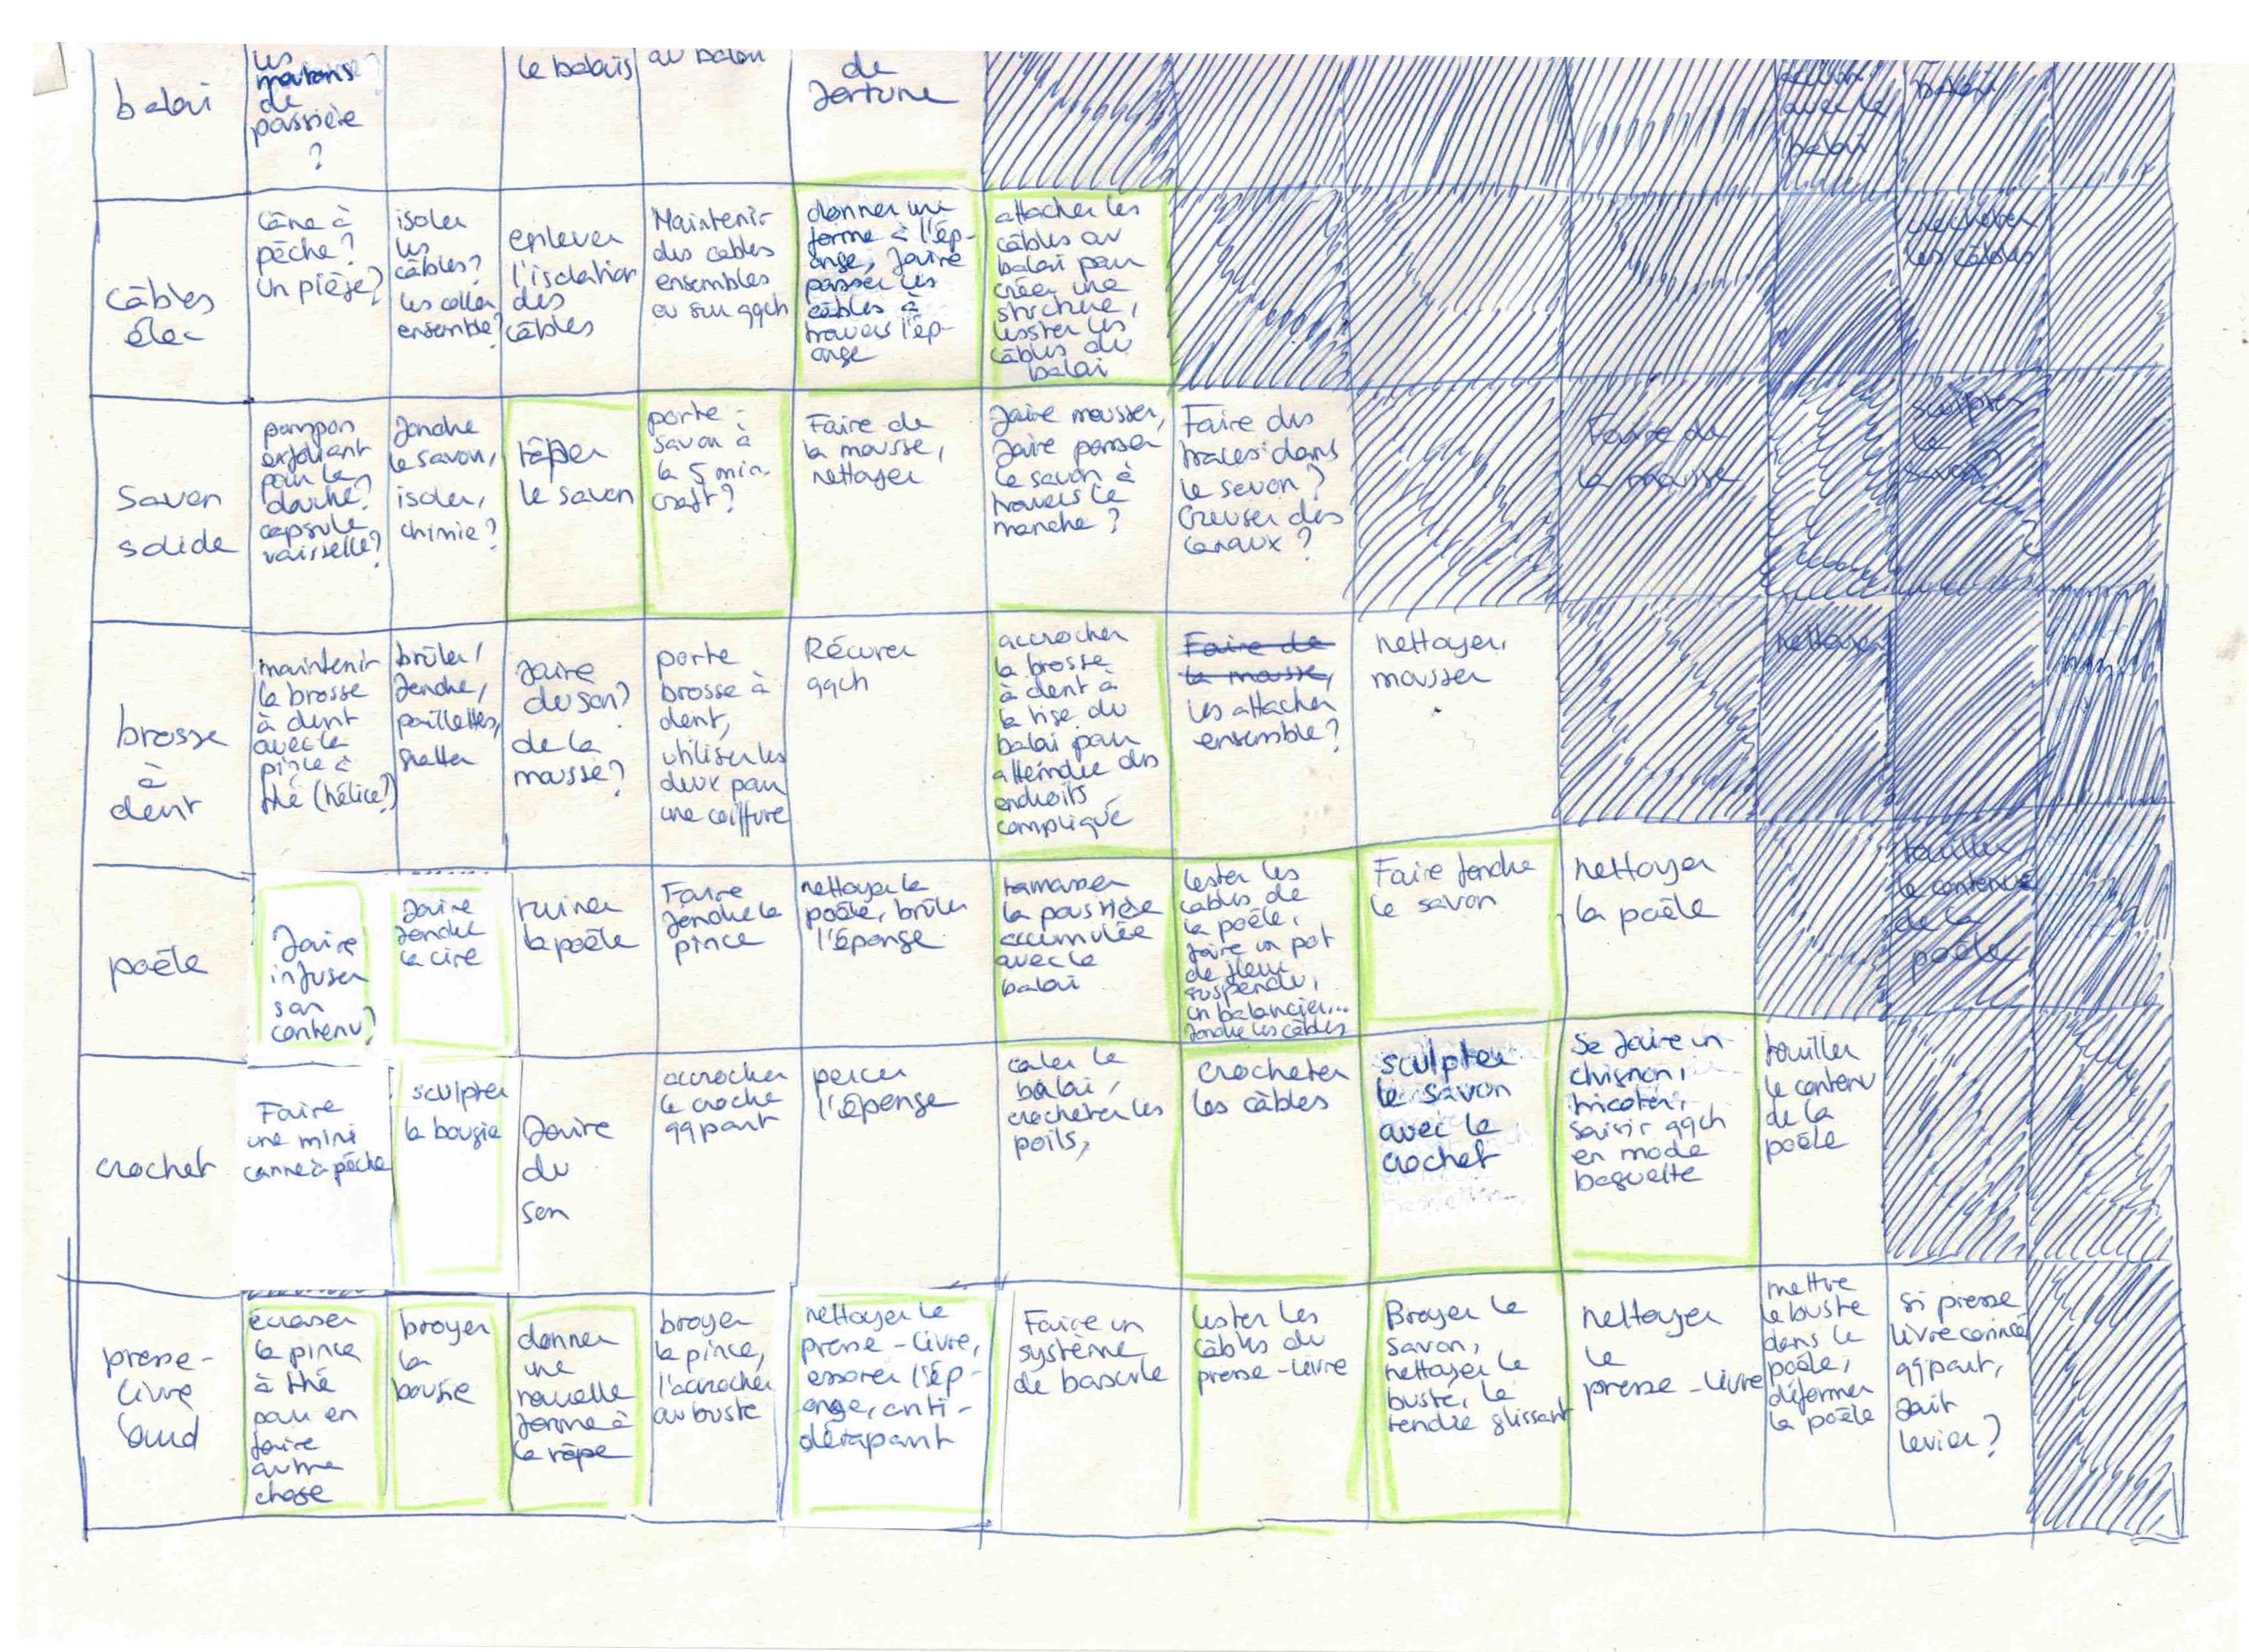 balai
les
moutons
de
poussière
?
le balais
au balai
de
fortune
avec le
balai
balai
câbles
élec
Câne à
pêche ?
Un piège?
isoler
les
câbles?
les coller
ensemble?
enlever
l'isolation
des
câbles
Maintenir
des cables
ensembles
ou sur qqch
donner une
forme à l'ép-
onge, faire
passer les
câbles à
travers l'ép-
onge
attacher les
câbles au
balai pour
créer une
structure,
lester les
câbles du
balai
crocheter
les câbles
Savon
solide
pompon
exfoliant
pour la
douche?
capsule
vaisselle?
fondre
le savon,
isoler,
chimie ?
râper
le savon
porte-
savon à
la 5 min.
craft ?
Faire de
la mousse,
nettoyer
faire mousser,
faire passer
le savon à
travers le
manche ?
Faire des
traces dans
le savon ?
Creuser des
canaux ?
Faire de
la mousse
sculpter
le
savon?
brosse
à
dent
maintenir
la brosse
à dent
avec la
pince à
thé (hélice?)
brûler/
fondre,
paillettes,
gratter
faire
du son?
de la
mousse?
porte
brosse à
dent,
utiliser les
deux pour
une coiffure
Récurer
qqch
accrocher
la brosse
à dent à
la tise du
balai pour
atteindre des
endroits
compliqué
Faire de
la mousse,
les attacher
ensemble?
nettoyer,
mousser
nettoyer
poêle
faire
infuser
son
contenu?
faire
fondre
la cire
ruiner
la poêle
Faire
fondre la
pince
nettoyer la
poêle, brûler
l'éponge
ramasser
la poussière
accumulée
avec le
balai
lester les
cables de
la poêle,
faire un pot
de fleur
suspendu,
un balancier...
fondre les câbles
Faire fondre
le savon
nettoyer
la poêle
touiller
le contenu
de la
poêle
crochet
Faire
une mini
canne à pêche
sculpter
la bougie
faire
du
son
accrocher
le croche
qqpart
percer
l'éponge
caler le
balai,
crocheter les
poils,
crocheter
les câbles
sculpter
le savon
avec le
crochet
Se faire un
chignon,
tricoter,
saisir qqch
en mode
baguette
touiller
le contenu
de la
poêle
presse-
livre
lourd
écraser
la pince
à thé
pour en
faire
autre
chose
broyer
la
bougie
donner
une
nouvelle
forme à
la râpe
broyer
la pince,
l'accrocher
au buste
nettoyer le
presse-livre,
essorer l'ép-
onge, anti-
dérapant
Faire un
système
de bascule
lester les
câbles du
presse-livre
Broyer le
savon,
nettoyer le
buste, le
rendre glissant
nettoyer
le
presse-livre
mettre
le buste
dans la
poêle,
déformer
la poêle
si presse
livre coincé
qqpart,
fait
levier ?